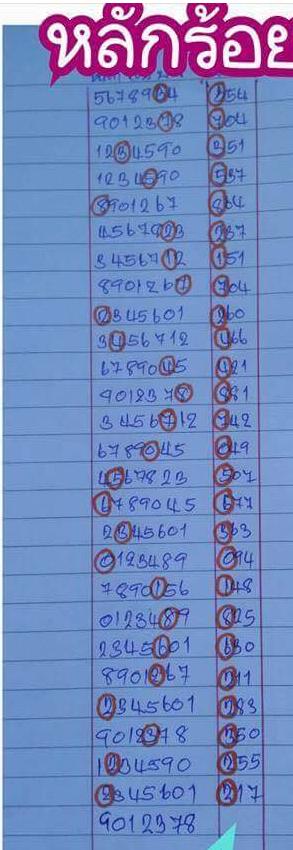 หลักร้อย
5678934 354
9012378 704
1234590 351
1234590 537
8901267 864
4567823 237
3456712 151
8901267 704
2345601 260
3456712 466
6789045 421
9012378 881
3456712 742
6789045 049
4567823 507
6789045 677
2345601 363
0123489 094
7890156 148
0123489 825
2345601 630
8901267 211
2345601 283
9012378 350
1234590 255
2345601 217
9012378